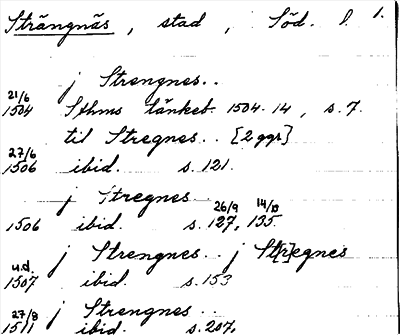 Strängnäs, stad, Söd. l. 1.
j Strengnes..
21/6 1504 Sthms tänkeb. 1504-14, s. 7.
til Stregnes.. [2 ggr]
27/6 1506 ibid. s. 121.
j Stregnes
1506 ibid. s. 26/9 127, 14/10 135.
j Strengnes.. j St[r]egnes
u.d. 1507 ibid. s. 153
j Strengnes..
27/8 1511 ibid. s. 207.